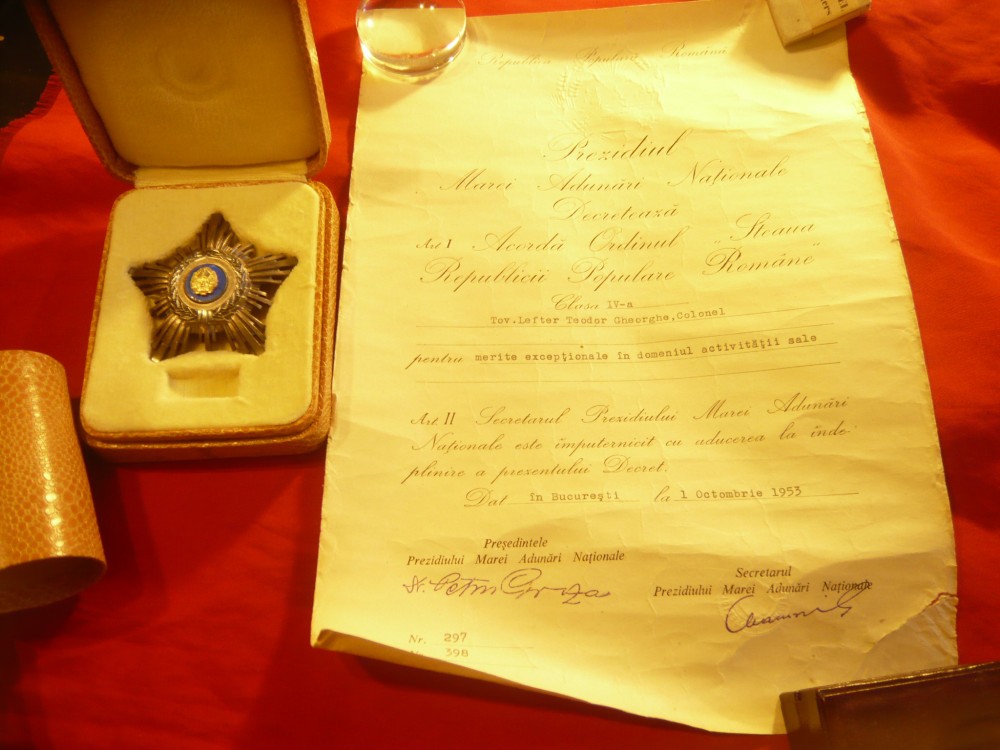 Republica Populară Română
Prezidiul
Marei Adunări Naționale
Decretează
Art I Acordă Ordinul „Steaua
Republicii Populare Române"
Clasa IV-a
Tov.Lefter Teodor Gheorghe,Colonel
pentru merite excepționale în domeniul activității sale
Art II Secretarul Prezidiului Marei Adunări
Naționale este împuternicit cu aducerea la înde-
plinire a prezentului Decret.
Dat în București la 1 Octombrie 1953
Președintele
Prezidiului Marei Adunări Naționale
Dr. Petru Groza
Secretarul
Prezidiului Marei Adunări Naționale
Nr. 297
398